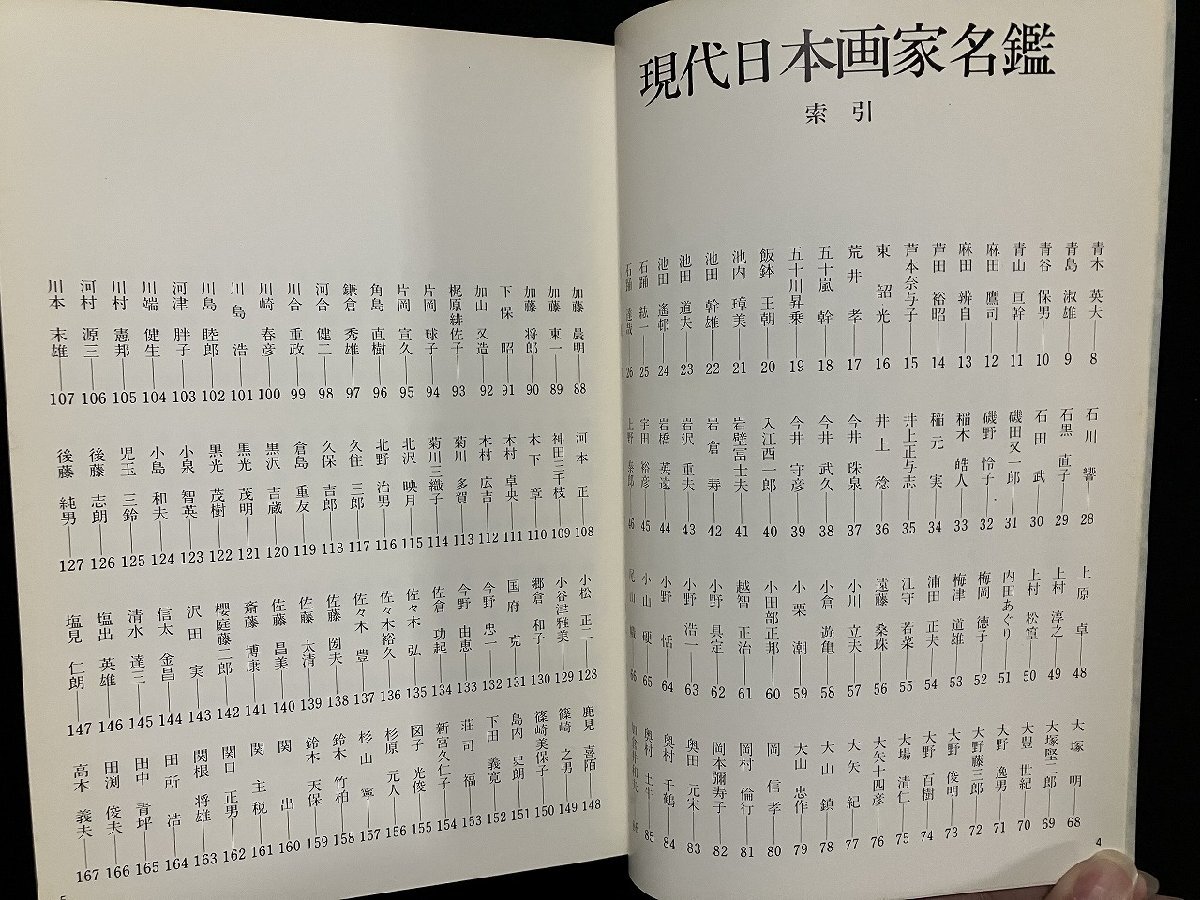 現代日本画家名鑑
索引
青木英大 8
青島淑雄 9
青谷保男 10
青山亘幹 11
麻田鷹司 12
麻田辨自 13
芦田裕昭 14
芦本奈与子 15
東韶光 16
荒井孝 17
五十嵐幹 18
五十川昇乗 19
飯鉢王朝 20
池内璋美 21
池田幹雄 22
池田道夫 23
池田遙邨 24
石踊紘一 25
石踊達哉 26
石川響 28
石黒直子 29
石田武 30
磯田又一郎 31
磯野怜子 32
稲木皓人 33
稲元実 34
井上正与志 35
井上稔 36
今井珠泉 37
今井武久 38
今井守彦 39
入江酉一郎 40
岩壁冨士夫 41
岩倉寿 42
岩沢重夫 43
岩橋英遠 44
宇田裕彦 45
上野泰郎 46
上原卓 48
上村淳之 49
上村松篁 50
内田あぐり 51
梅岡徳子 52
梅津道雄 53
浦田正夫 54
江守若菜 55
遠藤桑珠 56
小川立夫 57
小倉遊亀 58
小栗潮 59
小田部正邦 60
越智正治 61
小野具定 62
小野浩一 63
小野恬 64
小山硬 65
尾山幟 66
大塚明 68
大塚堅二郎 69
大豊世紀 70
大野逸男 71
大野藤三郎 72
大野俊明 73
大野百樹 74
大場清仁 75
大矢十四彦 76
大矢紀 77
大山鎮 78
大山忠作 79
岡信孝 80
岡村倫行 81
岡本彌寿子 82
奥田元宋 83
奥村千鶴 84
奥村土牛 85
4
加藤晨明 88
加藤東一 89
加藤将郎 90
下保昭 91
加山又造 92
梶原緋佐子 93
片岡球子 94
片岡宣久 95
角島直樹 96
鎌倉秀雄 97
河合健二 98
川合重政 99
川崎春彦 100
川島浩 101
川島睦郎 102
河津胖子 103
川端健生 104
川村憲邦 105
河村源三 106
川本末雄 107
河本正 108
神田三千枝 109
木下章 110
木村卓央 111
木村広吉 112
菊川多賀 113
菊川三織子 114
北沢映月 115
北野治男 116
久住三郎 117
久保吉郎 118
倉島重友 119
黒沢吉蔵 120
黒光茂明 121
黒光茂樹 122
小泉智英 123
小島和夫 124
児玉三鈴 125
後藤志朗 126
後藤純男 127
小松正二 128
小谷津雅美 129
郷倉和子 130
国府克 131
今野忠一 132
今野由恵 133
佐倉功起 134
佐々木弘 135
佐々木裕久 136
佐々木豊 137
佐藤圀夫 138
佐藤太清 139
佐藤昌美 140
斎藤博康 141
櫻庭藤二郎 142
沢田実 143
信太金昌 144
清水達三 145
塩出英雄 146
塩見仁朗 147
鹿見喜陌 148
篠崎之男 149
篠崎美保子 150
島内晃朗 151
下田義寛 152
荘司福 153
新宮久仁子 154
図子光俊 155
杉原元人 156
杉山寧 157
鈴木竹柏 158
鈴木天保 159
関出 160
関主税 161
関口正男 162
関根将雄 163
田所浩 164
田中青坪 165
田渕俊夫 166
高木義夫 167
5